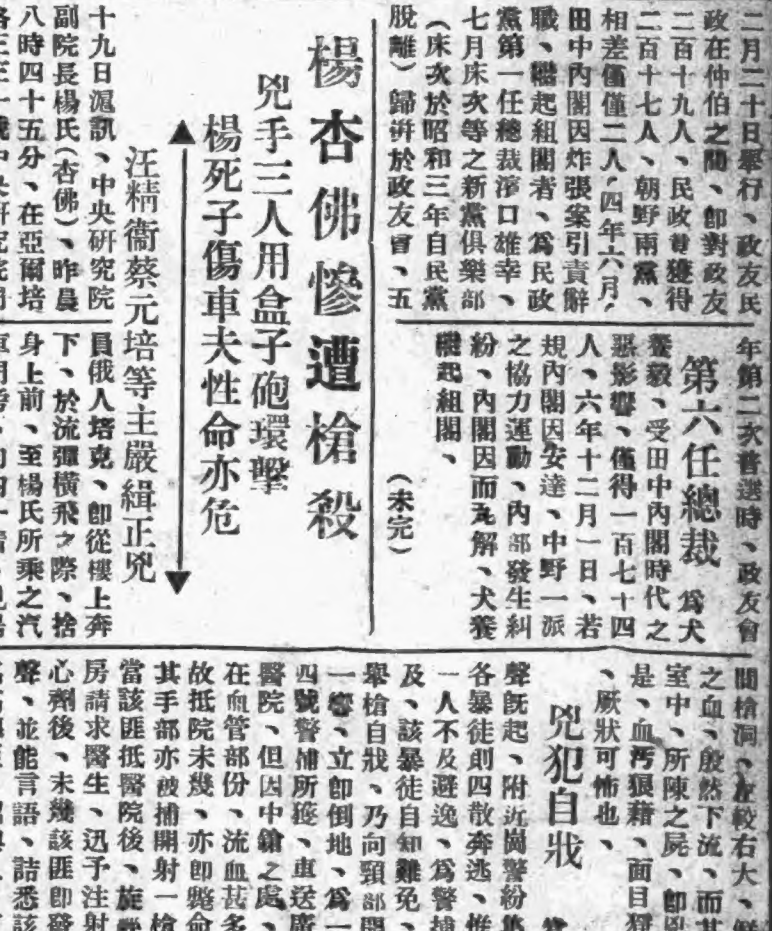 二月二十日舉行、政友民
政在仲伯之間、卽對政友
二百十九人、民政曾獲得
二百十七人、朝野兩黨、
相差僅僅二人、四年六月、
田中內閣因炸張案引責辭
職、繼起組閣者、爲民政
黨第一任總裁濱口雄幸、
七月床次等之新黨俱樂部
(床次於昭和三年自民黨
脫離)歸倂於政友會、五
年第二次普選時、政友會
第六任總裁 爲犬
養毅、受田中內閣時代之
惡影響、僅得一百七十四
人、六年十二月一日、若
規內閣因安達、中野一派
之協力運動、內部發生糾
紛、內閣因而瓦解、犬養
繼起組閣、
(未完)
楊杏佛慘遭槍殺
兇手三人用盒子砲環擊
楊死子傷車夫性命亦危
汪精衞蔡元培等主嚴緝正兇
十九日滬訊、中央硏究院
副院長楊氏(杏佛)、昨晨
八時四十五分、在亞爾培
員俄人培克、卽從樓上奔
下、於流彈橫飛之際、捨
身上前、至楊氏所乘之汽
間槍洞、左較右大、鮮
之血、殷然下流、而其
室中、所陳之屍、卽兇
是、血汚狼藉、面目猙
、厥狀可怖也、
兇犯自戕
聲旣起、附近崗警紛集
各暴徒則四散奔逃、惟
一人不及避逸、爲警捕
及、該暴徒自知難免、
舉槍自戕、乃向頸部開
一響、立卽倒地、爲一
四號警捕所獲、車送廣
醫院、但因中鎗之處、
在血管部份、流血甚多
故抵院未幾、亦卽斃命
其手部亦被捕開射一槍
當該匪抵醫院後、旋
房請求醫生、迅予注射
心劑後、未幾該匪卽發
聲、並能言語、詰悉該